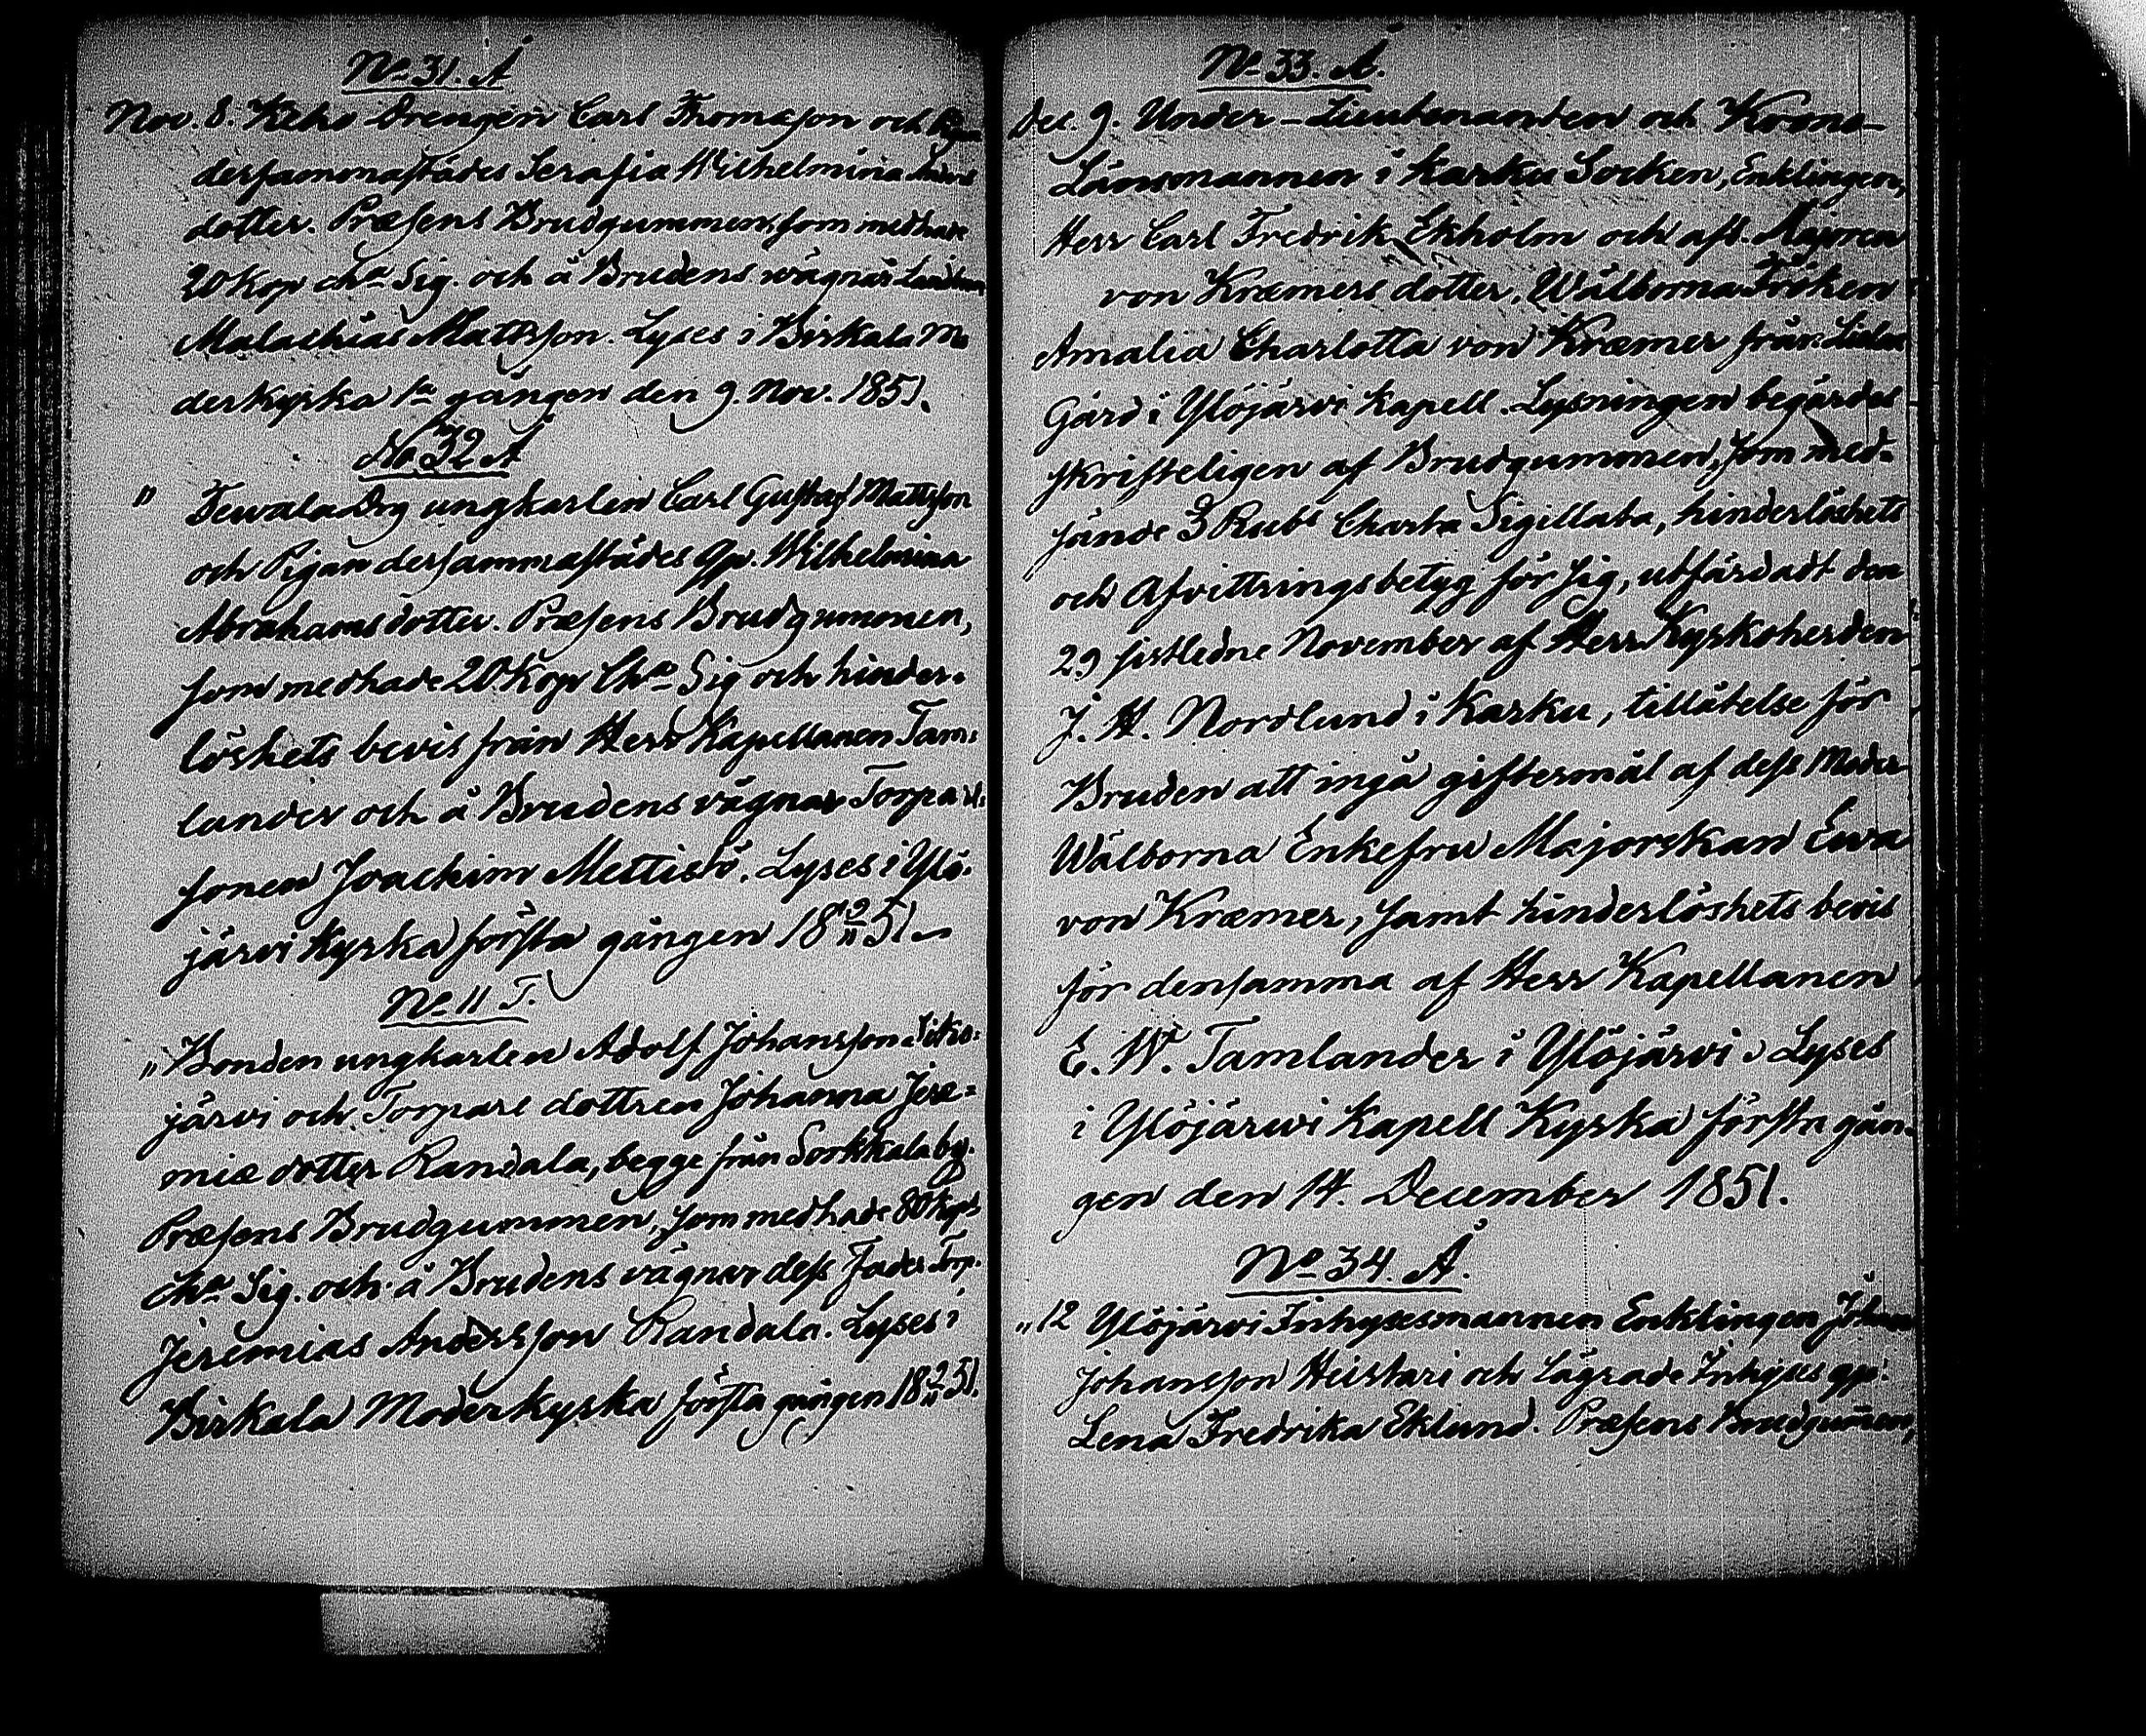 No 31. Å
Nov. 8. Keho Drengen Carl Thomasson och Pigan
dersammastädes Serafia Wilhelmina
dotter. Præsens Brudgummen, som medhade
20 Kop cha Sig. och å Brudens wägnar
Malachias Mattsson. Lyses i Birkala Mo
derkyrka 1a gången den 9. Nov. 1851.
No 32 Å
" Tewala Drg ungkarlen Carl Gustaf Mattsson
och Pigan dersammastädes qp. Wilhelmina
Abrahamsdotter. Præsens Brudgummen,
som medhade 20 Kop Cha Sig och hinder-
löshets bevis från Herr Kapellanen Tam-
lander och å Brudens vägnar Torpare
sonen Joachim Mettistö. Lyses i Ylö-
järvi Kyrka första gången 18 9/11 51.
No 11 T.
" Bonden ungkarlen Adolf Johansson Siko-
järvi och Torpare dottren Johanna Jere-
miæ dotter Randala, begge från Sorkkala by.
Præsens Brudgummen, som medhade 80 Kop
cha Sig. och å Brudens vägnar dess Fader Torp.
Jeremias Andersson Randala. Lyses i
Birkala Moderkyrka första gången 18 23/11 51.
No 33. Å.
Dec. 9. Under-Lieutenanden och Krono-
Länsmannen i Karku Socken, Enklingen,
Herr Carl Fredrik Ekholm och afl. Majoren
von Kræmers dotter, Wälborna Fröken
Amalia Charlotta von Kræmer från
Gård i Ylöjärvi Kapell. Lysningen begärdes
skrifteligen af Brudgummen, som med-
sände 3 Rubl Charta Sigillata, hinderlöshets
och Afvittringsbetyg för sig, utfärdadt den
29 sistledne November af Herr Kyrkoherden
J. H. Nordlund i Karku, tillåtelse för
Bruden att ingå giftermål af dess Moder
Wälborna Enkefru Majorskan Ewa
von Kræmer, samt hinderlöshets bevis
för densamma af Herr Kapellanen
E. W. Tamlander i Ylöjärvi. Lyses
i Ylöjärwi Kapell Kyrka första gån-
gen den 14. December 1851.
No 34. Å.
" 12 Ylöjärvi Inhysesmannen Enklingen Johan
Johansson Heiskari och Lägrade Inhyses qp.
Lena Fredrika Eklund. Præsens Brudgummen,